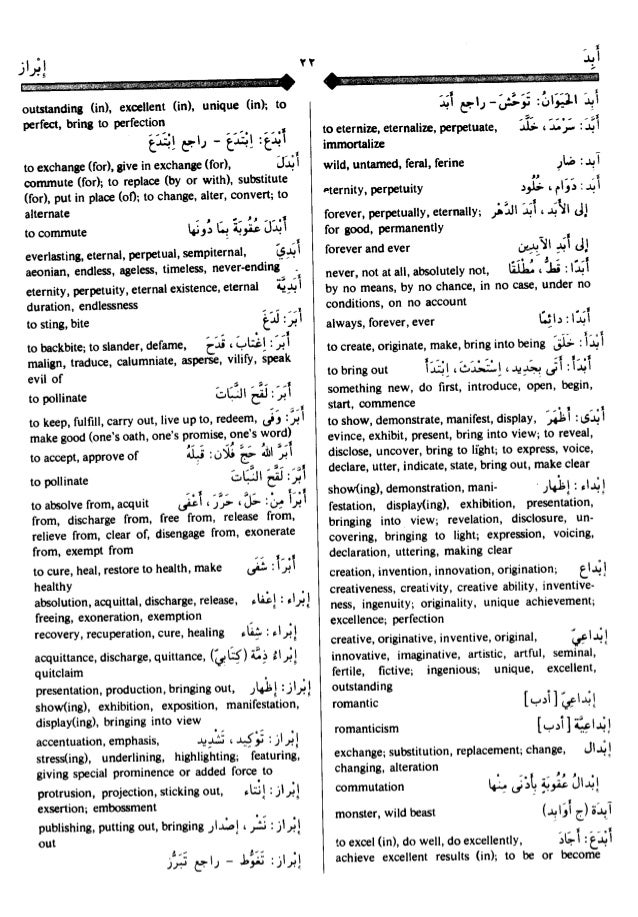 أَبِدَ ٢٢ إبْراز
أَبِدَ الحَيَوَانُ: تَوَحَّشَ - راجع أَبَدَ
to eternize, eternalize, perpetuate, أَبَّدَ: سَرْمَدَ، خَلَّدَ
immortalize
wild, untamed, feral, ferine آبد: ضار
eternity, perpetuity أَبَد: دَوَام، خُلُود
forever, perpetually, eternally; إلى الأَبَد، أَبَدَ الدَّهْر
for good, permanently
forever and ever إلى أَبَدِ الآبِدِين
never, not at all, absolutely not, أَبَدًا: قَطُّ، مُطْلَقًا
by no means, by no chance, in no case, under no
conditions, on no account
always, forever, ever أَبَدًا: دائِمًا
to create, originate, make, bring into being أَبْدَأَ: خَلَقَ
to bring out أَبْدَأَ: أَتَى بِجَدِيد، اِسْتَحْدَثَ، اِبْتَدَأَ
something new, do first, introduce, open, begin,
start, commence
to show, demonstrate, manifest, display, أَبْدَى: أَظْهَرَ
evince, exhibit, present, bring into view; to reveal,
disclose, uncover, bring to light; to express, voice,
declare, utter, indicate, state, bring out, make clear
show(ing), demonstration, mani- إبْداء: إظْهار
festation, display(ing), exhibition, presentation,
bringing into view; revelation, disclosure, un-
covering, bringing to light; expression, voicing,
declaration, uttering, making clear
creation, invention, innovation, origination; إبْداع
creativeness, creativity, creative ability, inventive-
ness, ingenuity; originality, unique achievement;
excellence; perfection
creative, originative, inventive, original, إبْداعيّ
innovative, imaginative, artistic, artful, seminal,
fertile, fictive; ingenious; unique, excellent,
outstanding
romantic إبْداعيّ [أدب]
romanticism إبْداعيَّة [أدب]
exchange; substitution, replacement; change, إبْدال
changing, alteration
commutation إبْدالُ عُقُوبَةٍ بِأَدْنَى مِنْها
monster, wild beast آبِدَة (ج أَوَابِد)
to excel (in), do well, do excellently, أَبْدَعَ: أَجَادَ
achieve excellent results (in); to be or become
outstanding (in), excellent (in), unique (in); to
perfect, bring to perfection
أَبْدَعَ: اِبْتَدَعَ - راجع اِبْتَدَعَ
to exchange (for), give in exchange (for), أَبْدَلَ
commute (for); to replace (by or with), substitute
(for), put in place (of); to change, alter, convert; to
alternate
to commute أَبْدَلَ عُقُوبَةً بِمَا دُونَها
everlasting, eternal, perpetual, sempiternal, أَبَدِيّ
aeonian, endless, ageless, timeless, never-ending
eternity, perpetuity, eternal existence, eternal أَبَدِيَّة
duration, endlessness
to sting, bite أَبَرَ: لَدَغَ
to backbite; to slander, defame, أَبَرَ: اِغْتَابَ، قَدَحَ
malign, traduce, calumniate, asperse, vilify, speak
evil of
to pollinate أَبَرَ: لَقَّحَ النَّبَات
to keep, fulfill, carry out, live up to, redeem, أَبَرَّ: وَفَى
make good (one's oath, one's promise, one's word)
to accept, approve of أَبَرَّ اللهُ حَجَّ فُلان: قَبِلَهُ
to pollinate أَبَّرَ: لَقَّحَ النَّبَات
to absolve from, acquit أَبْرَأَ مِنْ: حَلَّ، حَرَّرَ، أَعْفَى
from, discharge from, free from, release from,
relieve from, clear of, disengage from, exonerate
from, exempt from
to cure, heal, restore to health, make أَبْرَأَ: شَفَى
healthy
absolution, acquittal, discharge, release, إبْراء: إعْفَاء
freeing, exoneration, exemption
recovery, recuperation, cure, healing إبْراء: شِفَاء
acquittance, discharge, quittance, إبْراءُ ذِمَّة (كِتَابِيّ)
quitclaim
presentation, production, bringing out, إبْراز: إظْهار
show(ing), exhibition, exposition, manifestation,
display(ing), bringing into view
accentuation, emphasis, إبْراز: تَوْكِيد، تَشْدِيد
stress(ing), underlining, highlighting; featuring,
giving special prominence or added force to
protrusion, projection, sticking out, إبْراز: إنْتَاء
exsertion; embossment
publishing, putting out, bringing إبْراز: نَشْر، إصْدار
out
إبْراز: تَغَوُّط - راجع تَبَرُّز